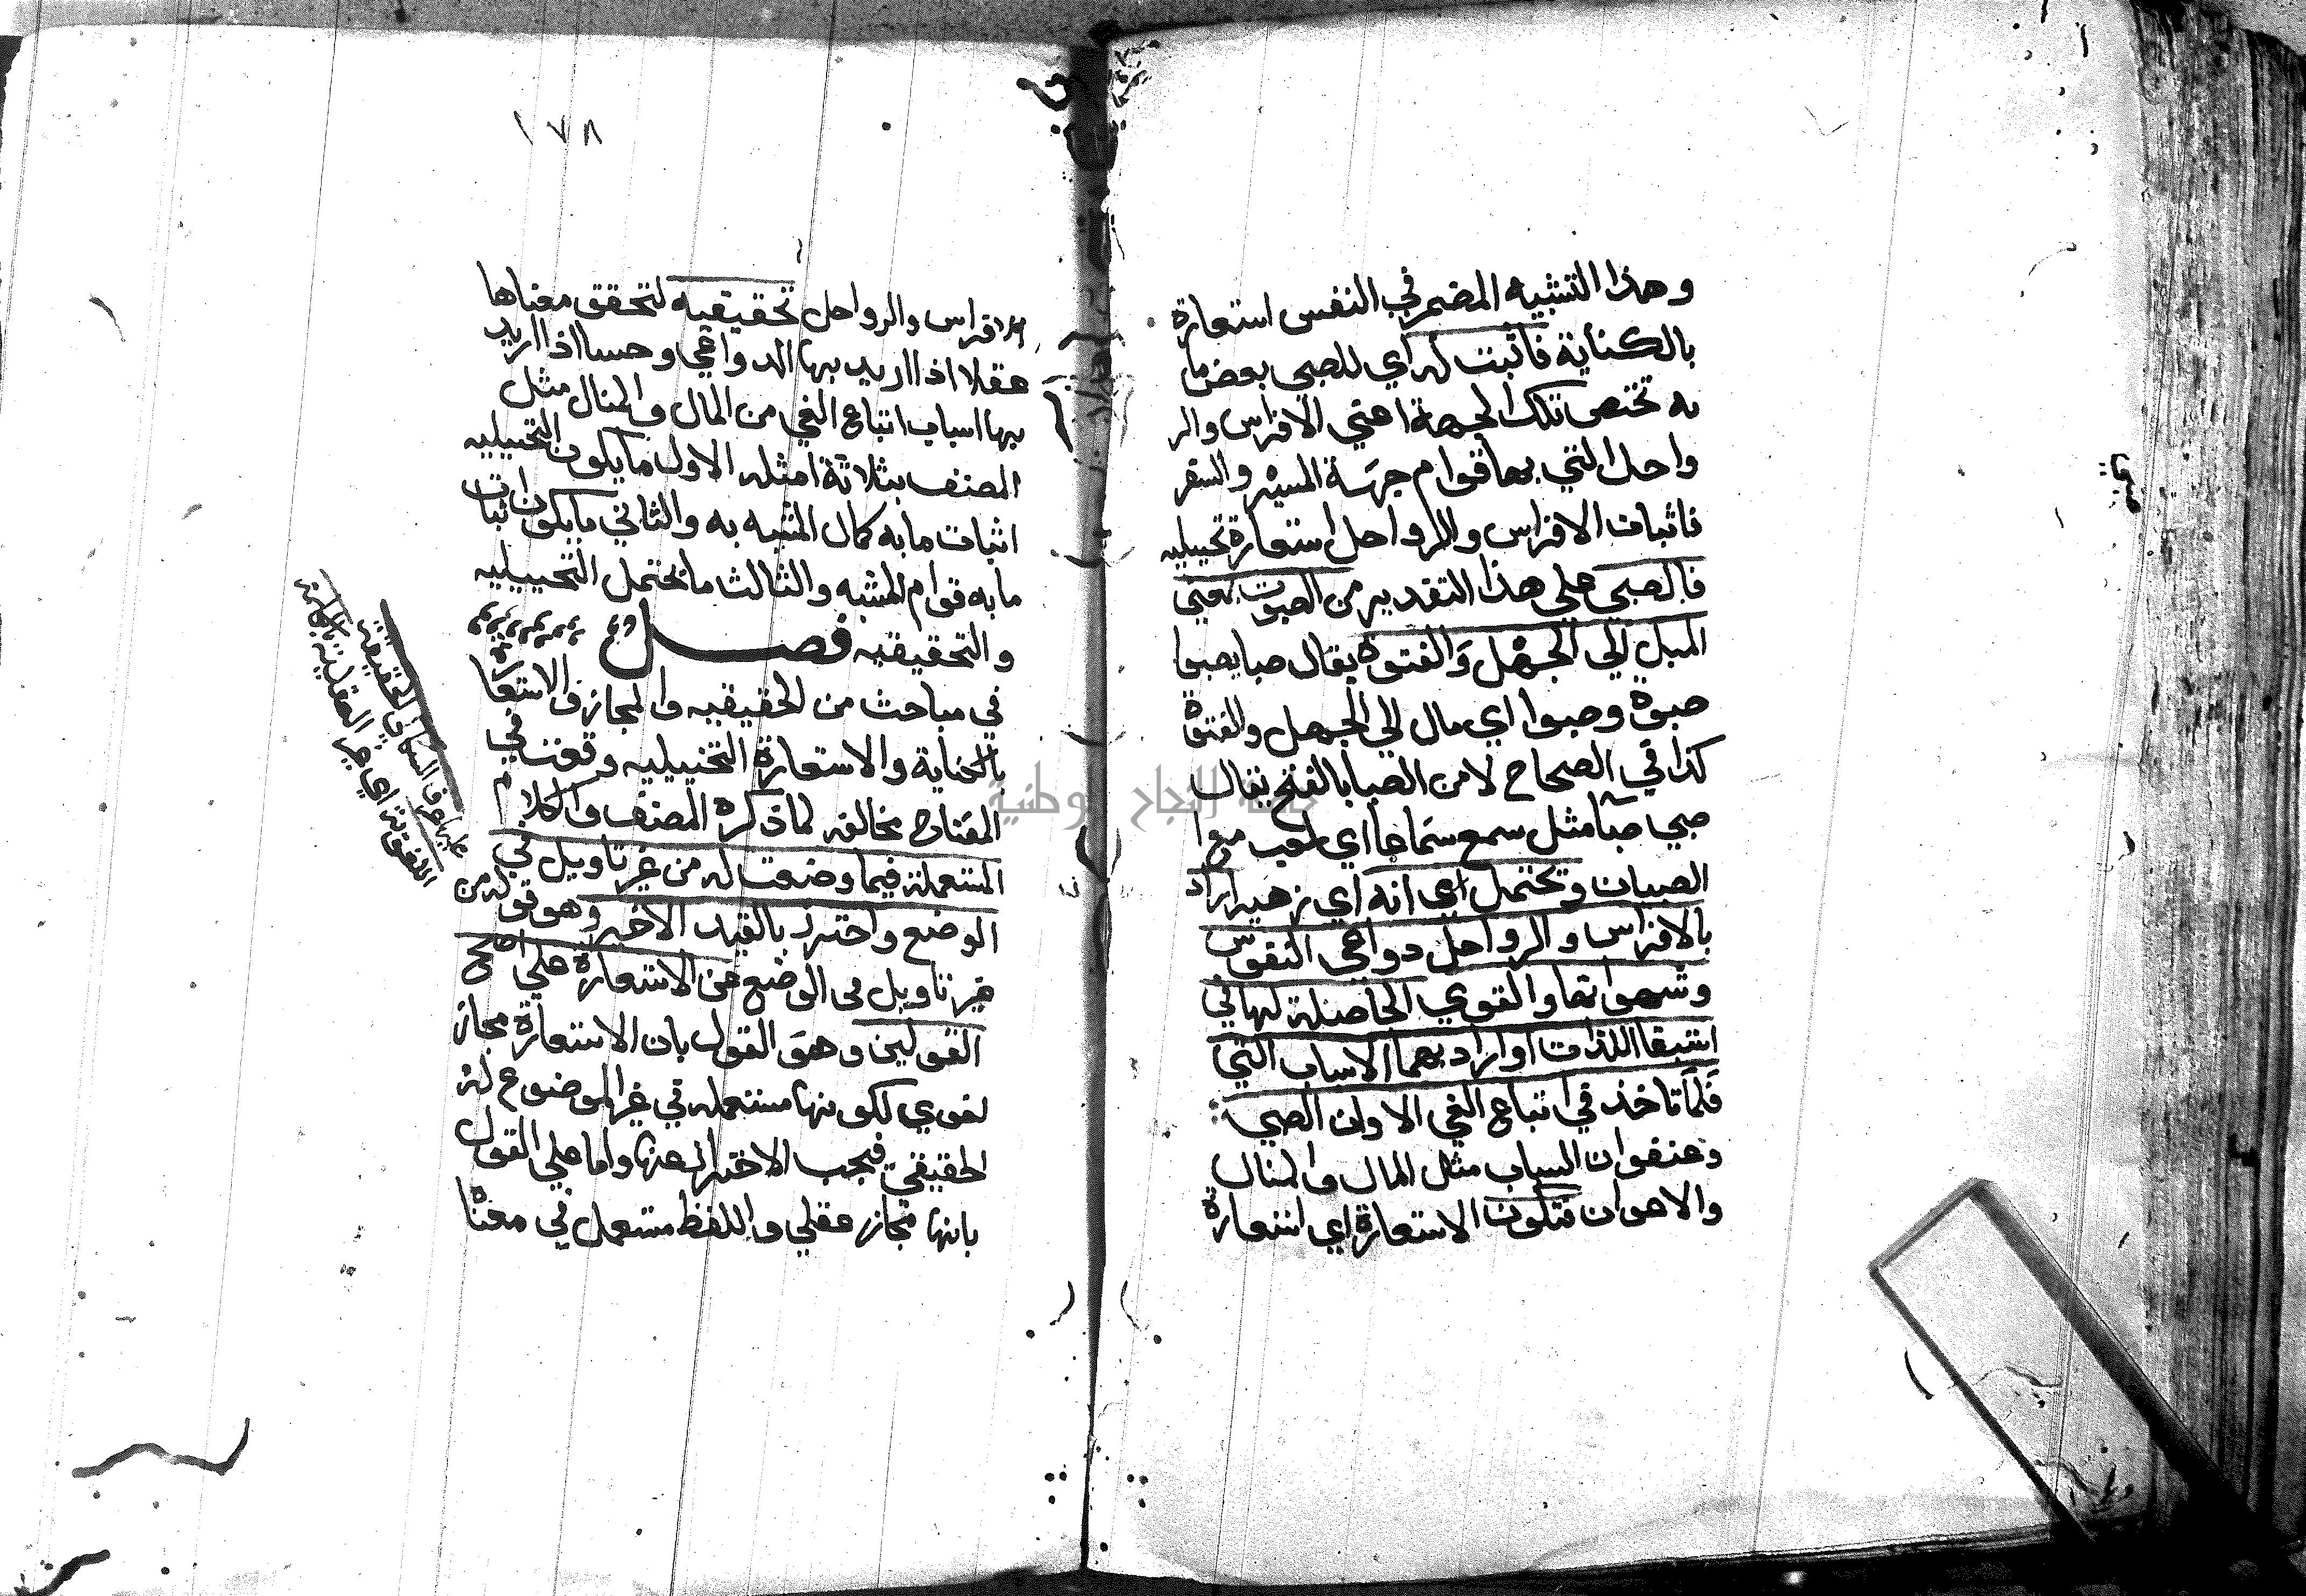 وهذا التشبيه المضمر في النفس استعارة
بالكناية فاثبت له اي للصبي بعض ما
به تختص تلك الجهة اعني الافراس والر
واحل التي بها قوام جهة المسير والسفر
فاثبات الافراس والرواحل استعارة تخييليه
فالصبي علي هذا التقدير من الصبوت بمعني
الميل الي الجهل والفتوة يقال صبا يصبوا
صبوة وصبوا اي مال الي الجهل والفتوة
كذا في الصحاح لا من الصبا بالفتح يقال
صبي صبا مثل سمع سماعا اي لعب مع
الصبيان ويحتمل انه اي زهير اراد
بالافراس والرواحل دواعي النفوس
وشهواتها والقوي الحاصلة لها في
استيفا اللذات او اراد بهما الاسباب التي
قلما تاخذ في اتباع الغي الا وان الصبي
وعنفوان الشباب مثل المال والمنال
والاعوان فتكون الاستعارة اي استعارة
١٧٨
الافراس والرواحل تحقيقيه لتحقق معناها
عقلا اذا اريد بها الدواعي وحسا اذا اريد
بها اسباب اتباع الغي من المال والمنال مثل
المصنف بثلاثة امثله الاول ما يكون التخييليه
اثبات ما به كمال المشبه به والثاني ما يكون اثبات
ما به قوام المشبه والثالث ما يحتمل التخييليه
والتحقيقيه فصل
في مباحث من الحقيقيه والمجاز والاستعارة
بالكناية والاستعارة التخييليه وقعت في
المفتاح مخالفه لما ذكره المصنف والكلام
المستعملة فيما وضعت له من غير تاويل في
الوضع واحترز بالقيد الاخير وهو قوله من
غير تاويل في الوضع عن الاستعارة علي اصح
القولين وهو القول بان الاستعارة مجاز
لغوي لكونها مستعمله في غير الموضوع له
الحقيقي فيجب الاحتراز عنها واما علي القول
بانها مجاز عقلي واللفظ مستعمل في معناه
عليها عرف السكاكي الحقيقة
اللغوية اي غير العقلية بالكلمة
جامعة النجاح الوطنية